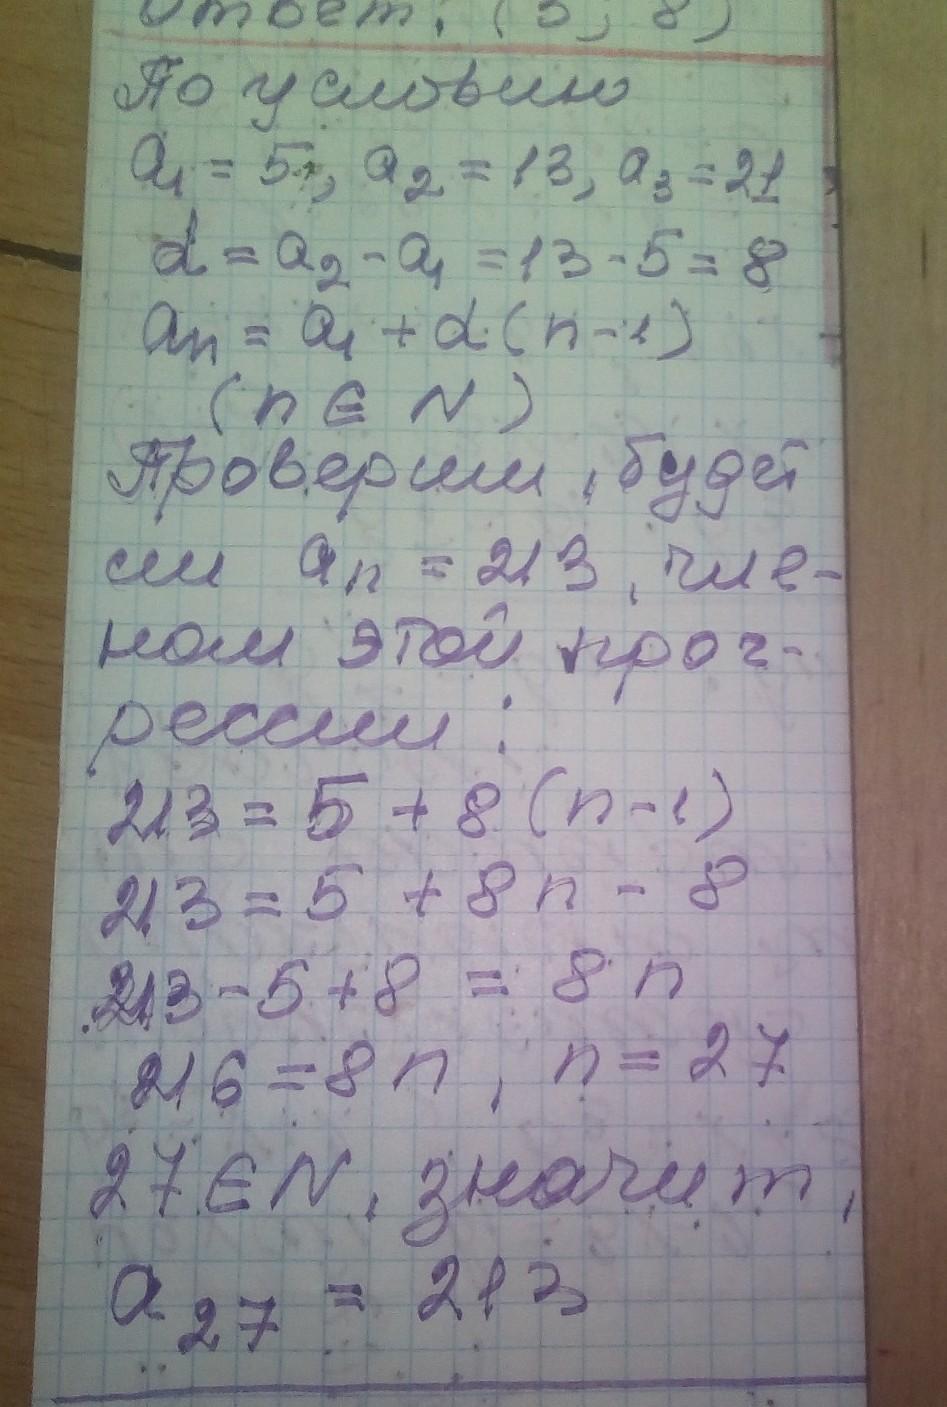 Ответ: (5; 8)
По условию
a₁ = 5, a₂ = 13, a₃ = 21
d = a₂ - a₁ = 13 - 5 = 8
aₙ = a₁ + d (n - 1)
(n ∈ N)
Проверим, будет
ли aₙ = 213, чле-
ном этой прог-
рессии:
213 = 5 + 8 (n - 1)
213 = 5 + 8n - 8
213 - 5 + 8 = 8n
216 = 8n, n = 27
27 ∈ N, значит,
a₂₇ = 213